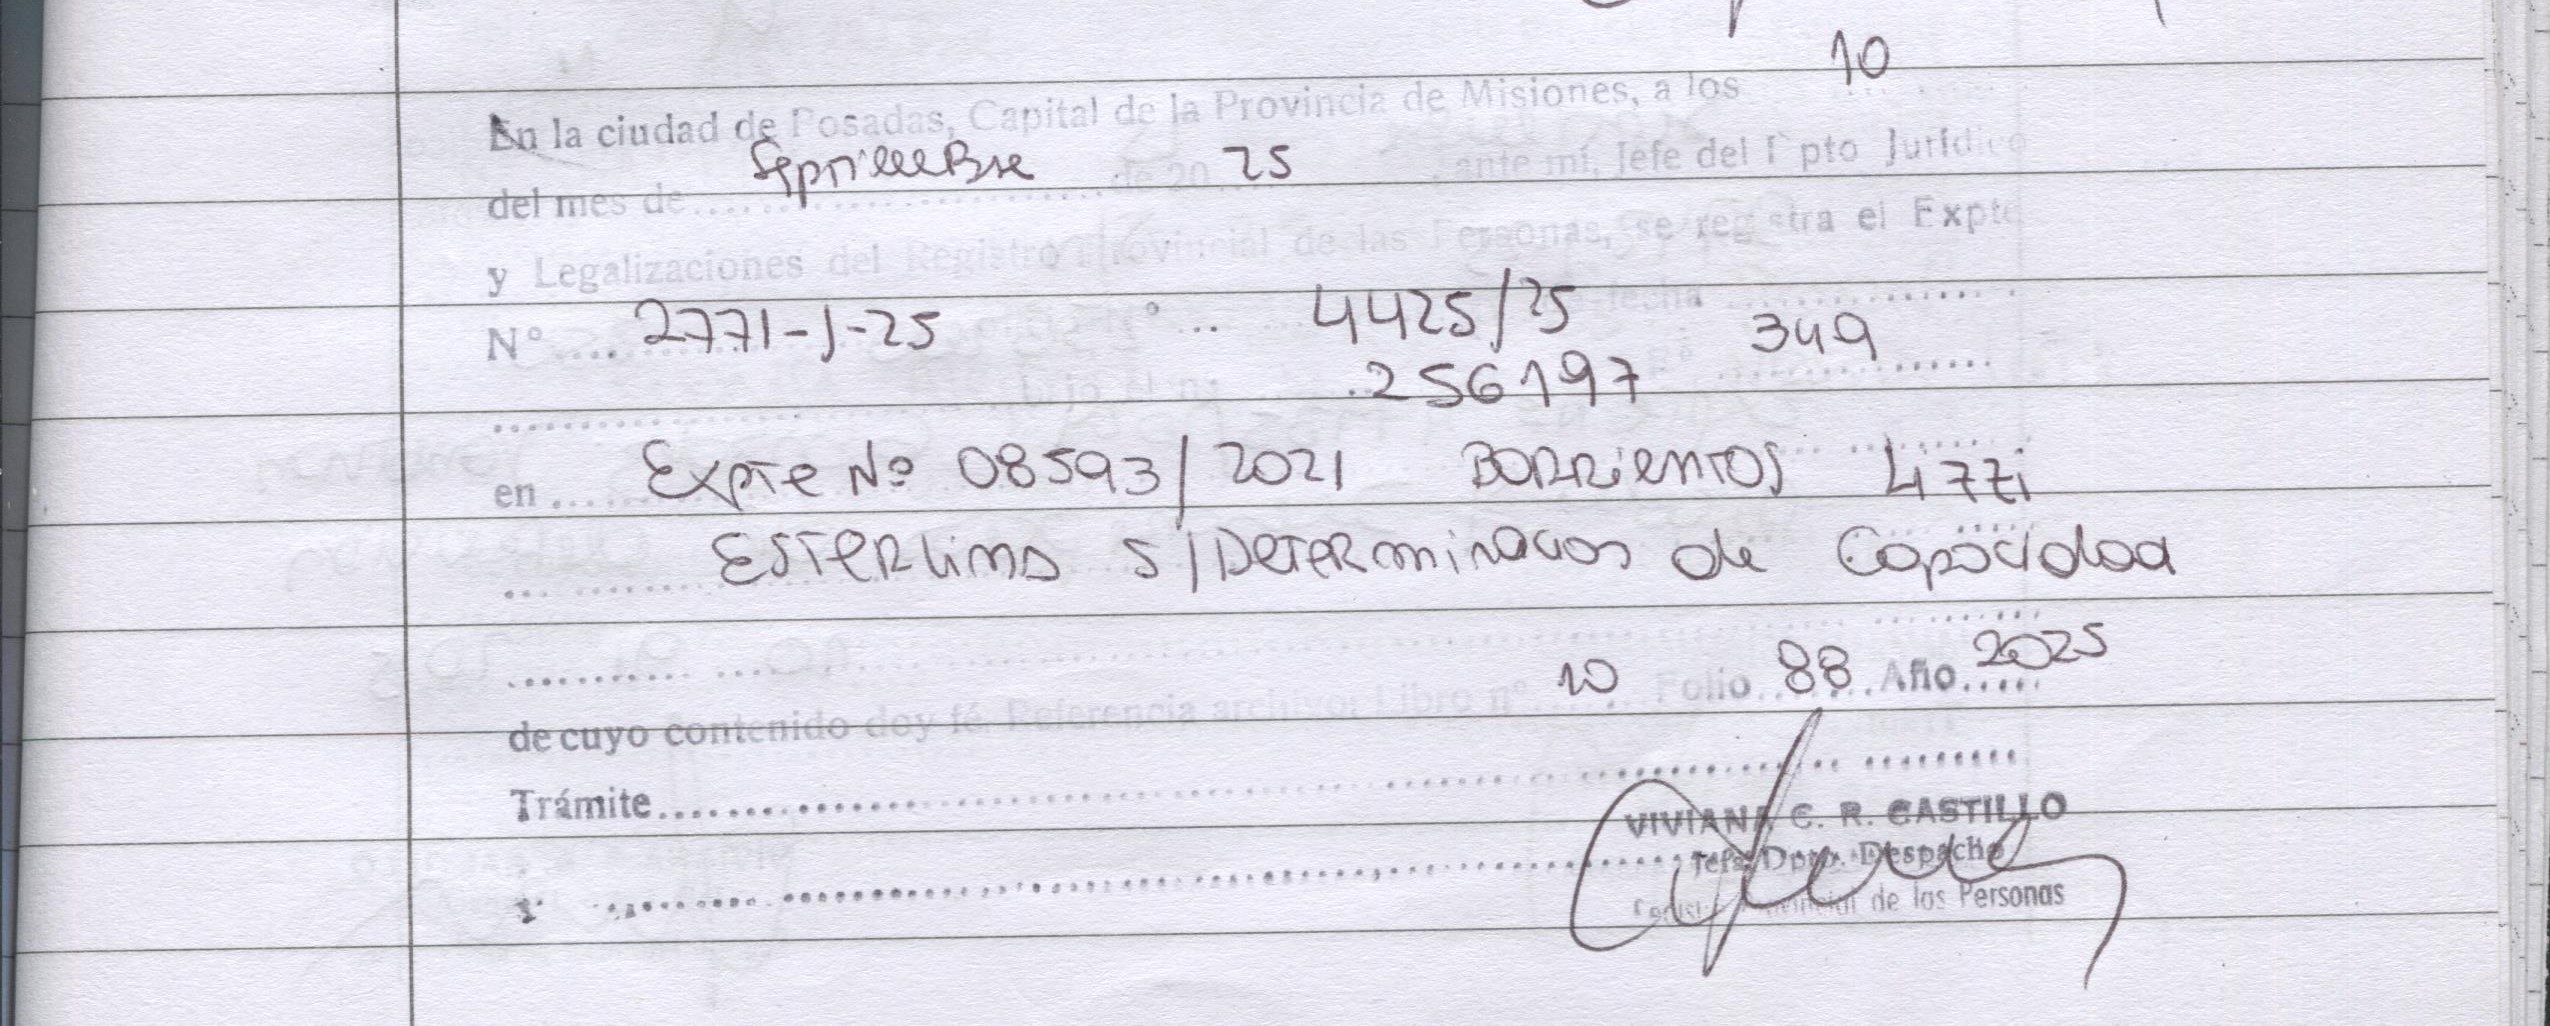 10
En la ciudad de Posadas, Capital de la Provincia de Misiones, a los
Septiembre 25
del mes de ........ de 20 .... , ante mí, Jefe del Dpto Jurídico
y Legalizaciones del Registro Provincial de las Personas, se registra el Expte
Nº .... 2771-J-25 nº ... 4425/25 fecha ........
349
256197
en .... Expte Nº 08593/2021 BARRIENTOS
ESTERLINA S/Determinacion de Capacidad
10 88 2025
de cuyo contenido doy fé. Referencia archivo: Libro nº ...... Folio ...... Año.....
Trámite........
VIVIANA C. R. CASTILLO
Jefa Dpto. Despacho
Registro Provincial de las Personas